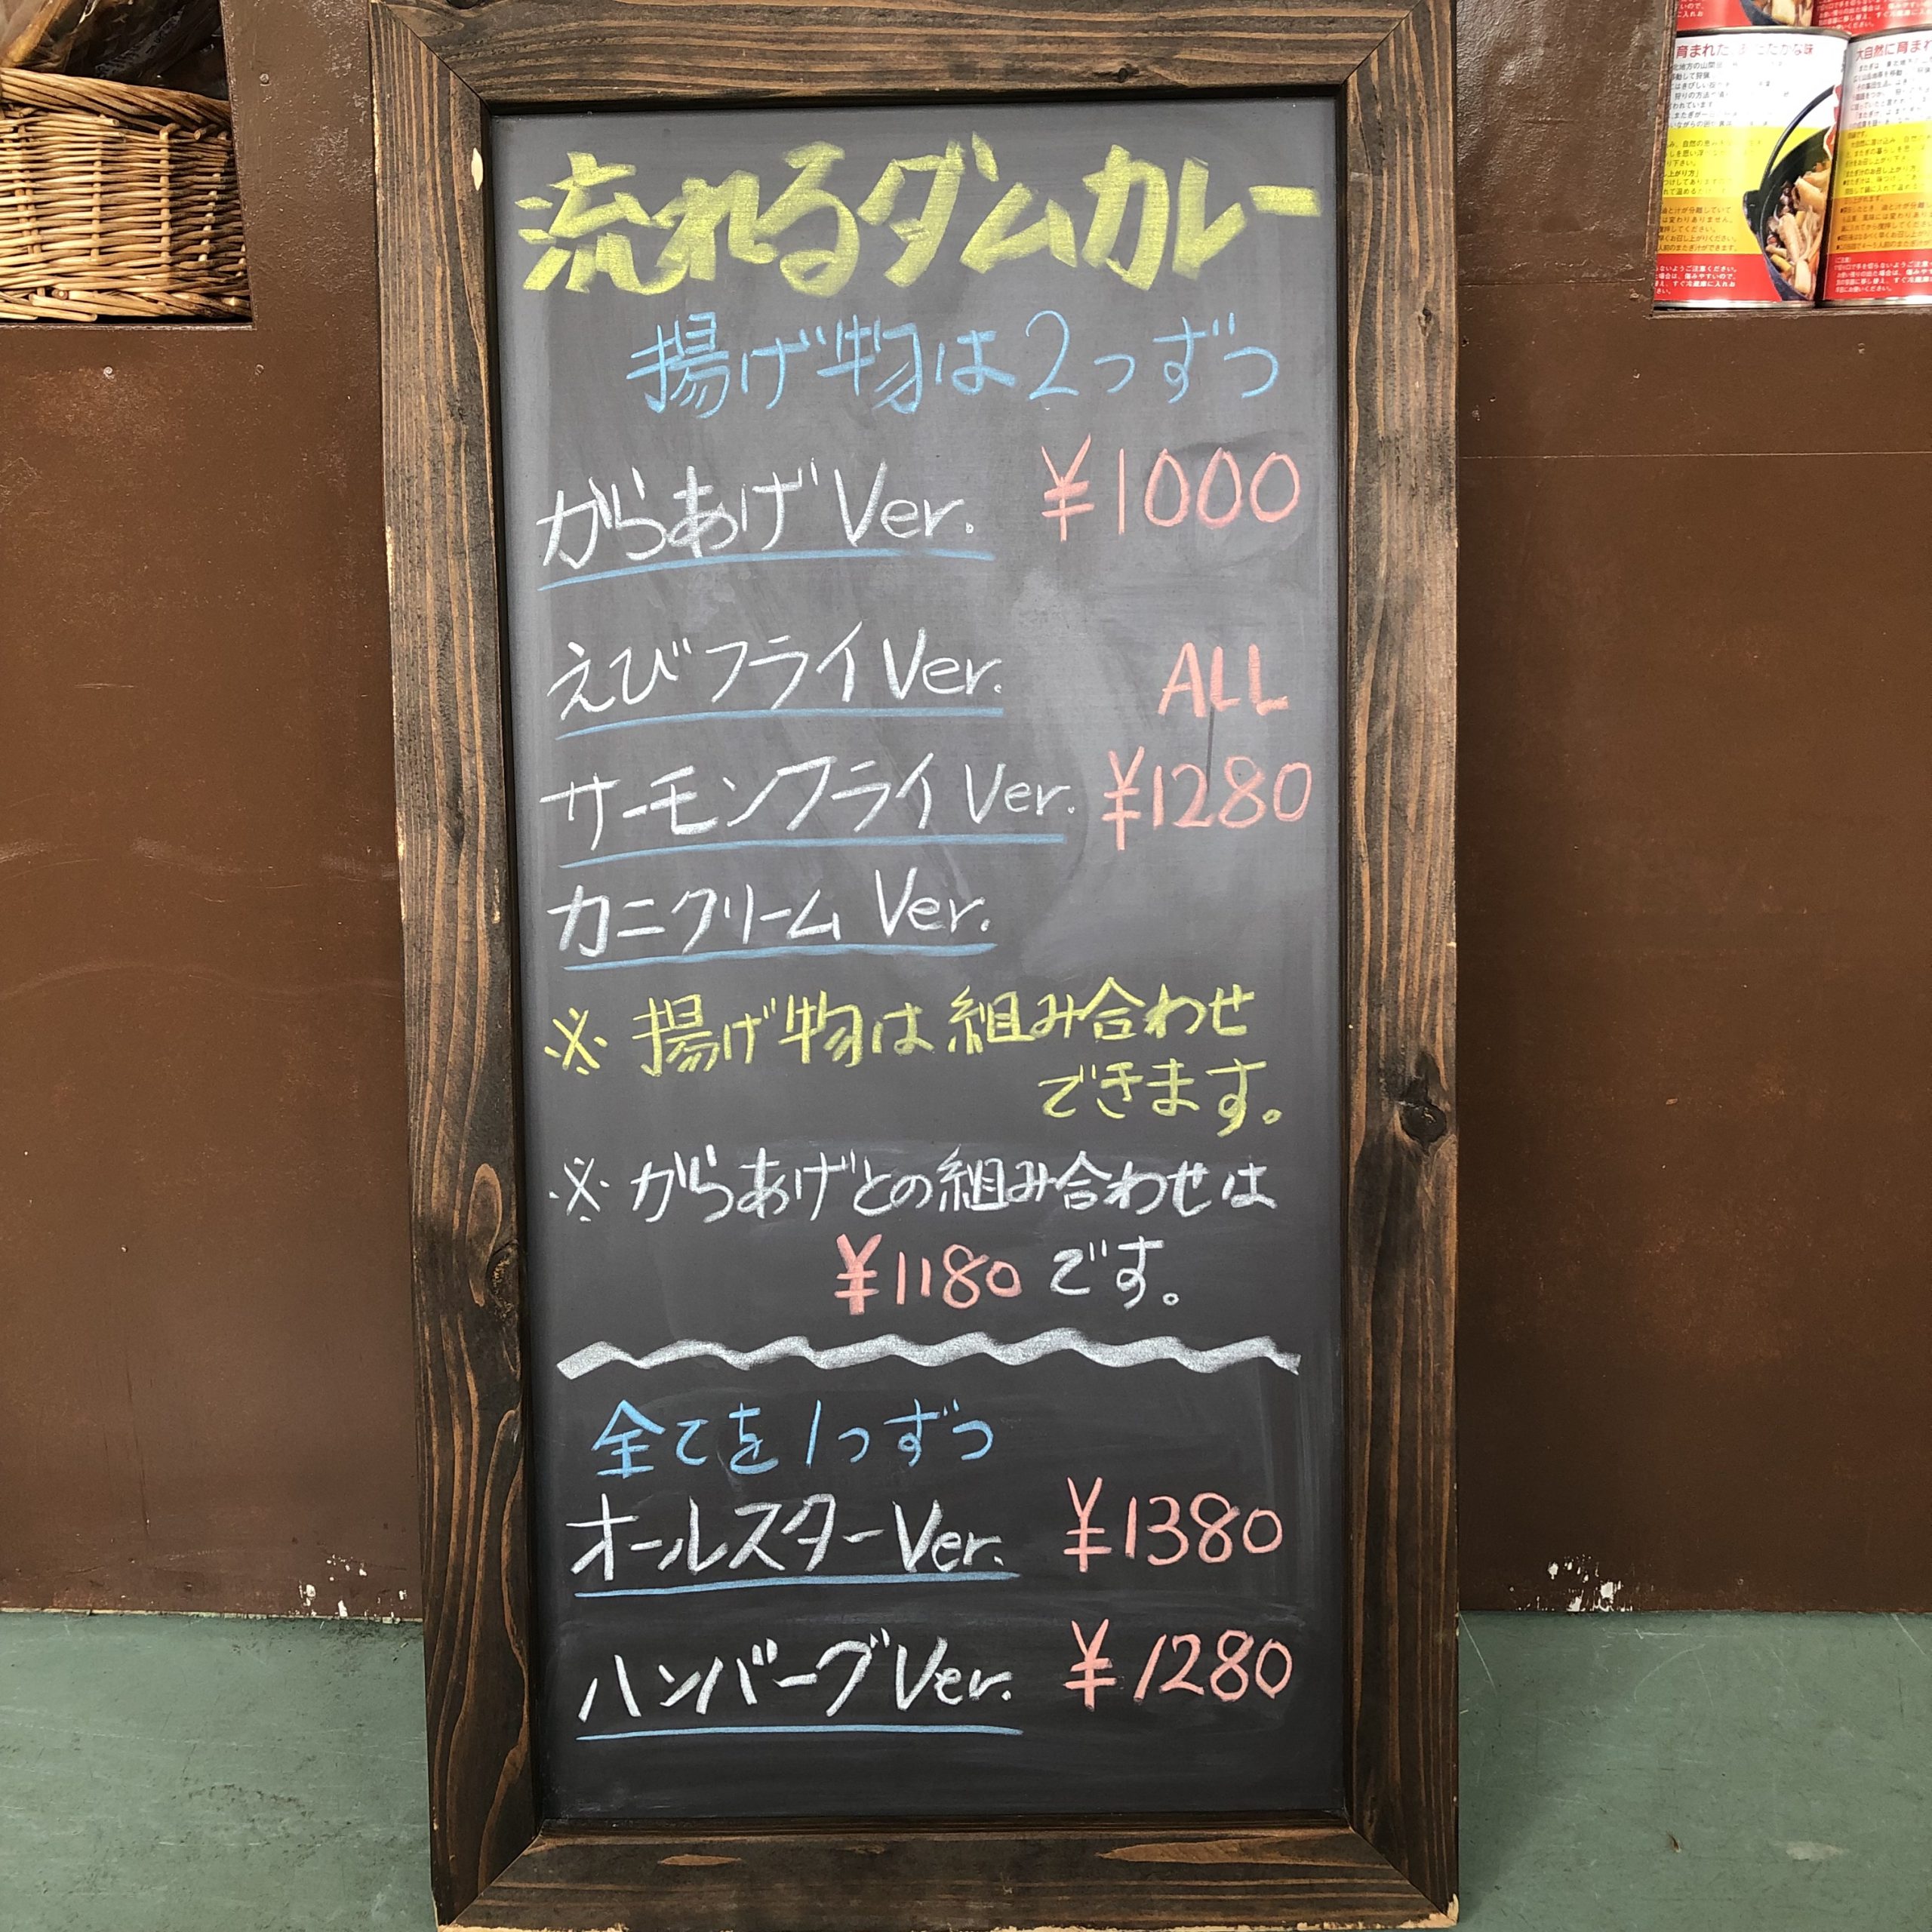 流れるダムカレー
揚げ物は2つずつ
がらあげVer. ¥1000
えびフライVer. ALL
サーモンフライVer. ¥1280
カニクリームVer.
※ 揚げ物は組み合わせ
できます。
※ がらあげとの組み合わせは
¥1180です。
全てを1つずつ
オールスターVer. ¥1380
ハンバーグVer. ¥1280
大自然に育まれ